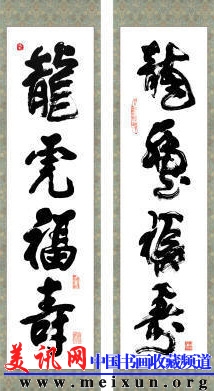 龍虎福壽
龍虎福壽
美讯网 中国书画收藏频道
www.meixun.org